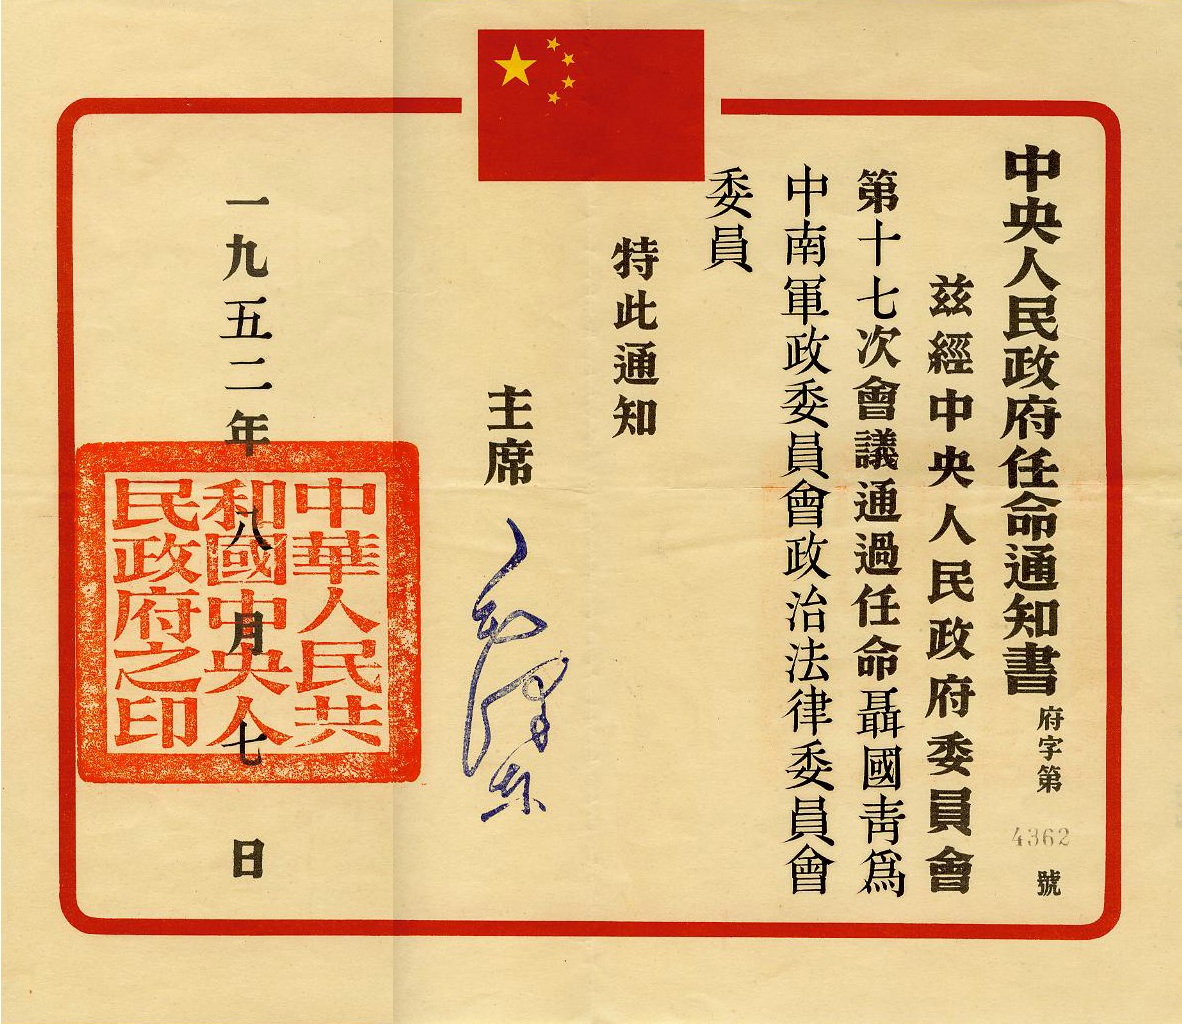 中央人民政府任命通知書
府字第 4362 號
茲經中央人民政府委員會
第十七次會議通過任命聶國青爲
中南軍政委員會政治法律委員會
委員
特此通知
主席
毛澤東
一九五二年八月七日
中華人民共
和國中央人
民政府之印